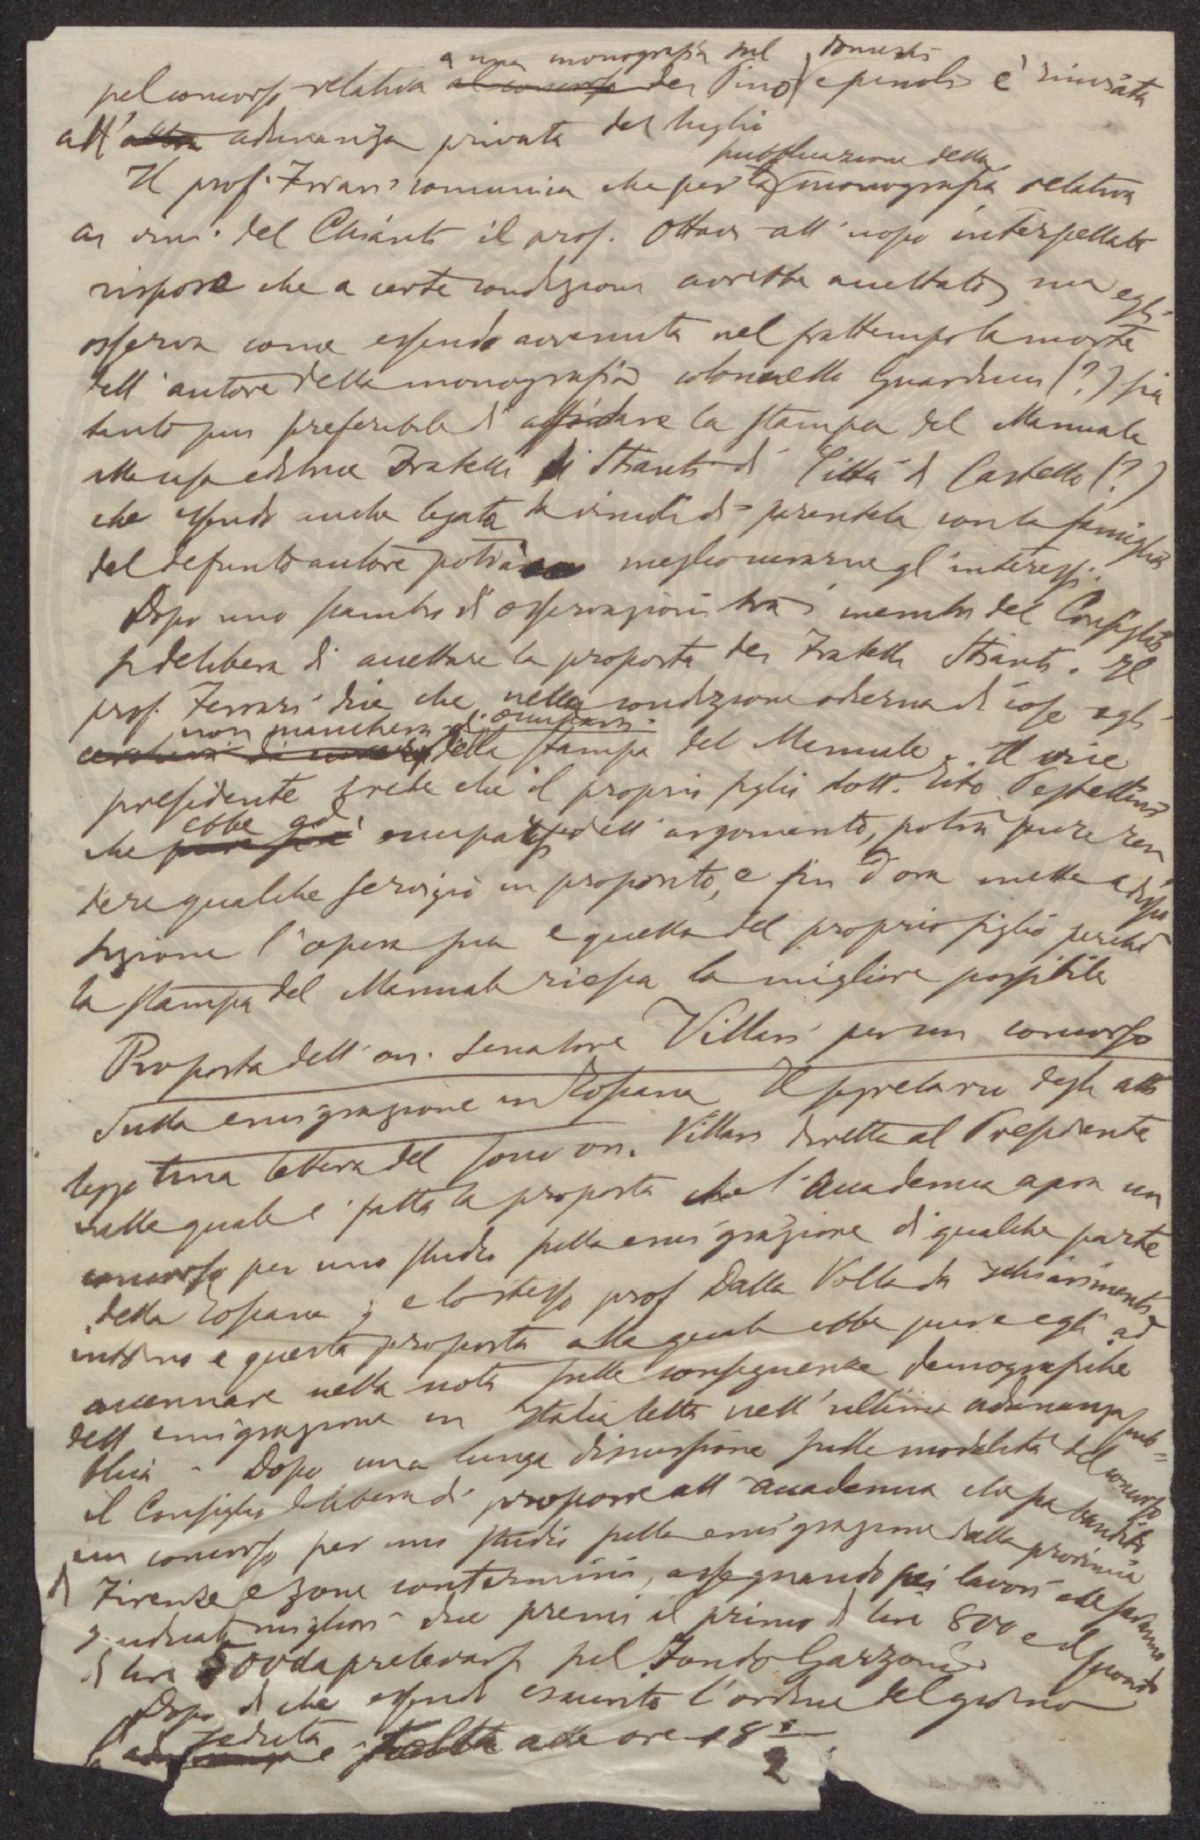 a una monografia sul domestico
pel concorso relativo al concorso del Pino e pinolo è rinviata
all' altra adunanza privata del luglio
pubblicazione della
Il prof. Ferrari comunica che per la monografia relativa
ai vini del Chianti il prof. Ottavi all'uopo interpellato
rispose che a certe condizioni avrebbe accettato, ma egli
osserva come essendo avvenuta nel frattempo la morte
dell'autore della monografia colonnello Guarducci (?) sia
tanto più preferibile d'affidare la stampa del Manuale
alla casa editrice Fratelli Stianti di Città di Castello (?)
che essendo anche legata da vincoli di parentela con la famiglia
del defunto autore potrà meglio curarne gl'interessi.
Dopo uno scambio di osservazioni tra i membri del Consiglio
si delibera di accettare la proposta dei Fratelli Stianti. Il
prof. Ferrari dice che nella condizione odierna di cose egli
non mancherà di occuparsi
cercherà di della stampa del Manuale. Il vice
presidente crede che il proprio figlio dott. Tito Pestellini
ebbe già
che pure occuparsi dell'argomento, potrà pure ren
dere qualche servigio in proposito, e fin d'ora mette a dispo
sizione l'opera sua e quella del proprio figlio perché
la stampa del Manuale riesca la migliore possibile
Proposta dell'on. Senatore Villari per un concorso
sulla emigrazione in Toscana Il segretario degli atti
legge una lettera del socio on. Villari diretta al Presidente
nella quale è fatta la proposta che l'Accademia apra un
concorso per uno studio sulla emigrazione di qualche parte
della Toscana; e lo stesso prof Dalla Volta dà schiarimenti
intorno a questa proposta alla quale ebbe pure egli ad
accennare nella nota sulle conseguenze demografiche
dell'emigrazione in Italia letta nell'ultima adunanza pub=
blica - Dopo una lunga discussione sulle modalità del concorso
il Consiglio delibera di proporre all'Accademia che sia bandito
un concorso per uno studio sulla emigrazione dalla provincia
di Firenze e zone contermini, assegnando ai lavori che saranno
giudicati migliori due premi il primo di lire 800 e il secondo
di lire 500 da prelevarsi sul Fondo Garzoni
Dopo di che essendo esaurito l'ordine del giorno
seduta
l'adunanza è sciolta alle ore 18 1/2.